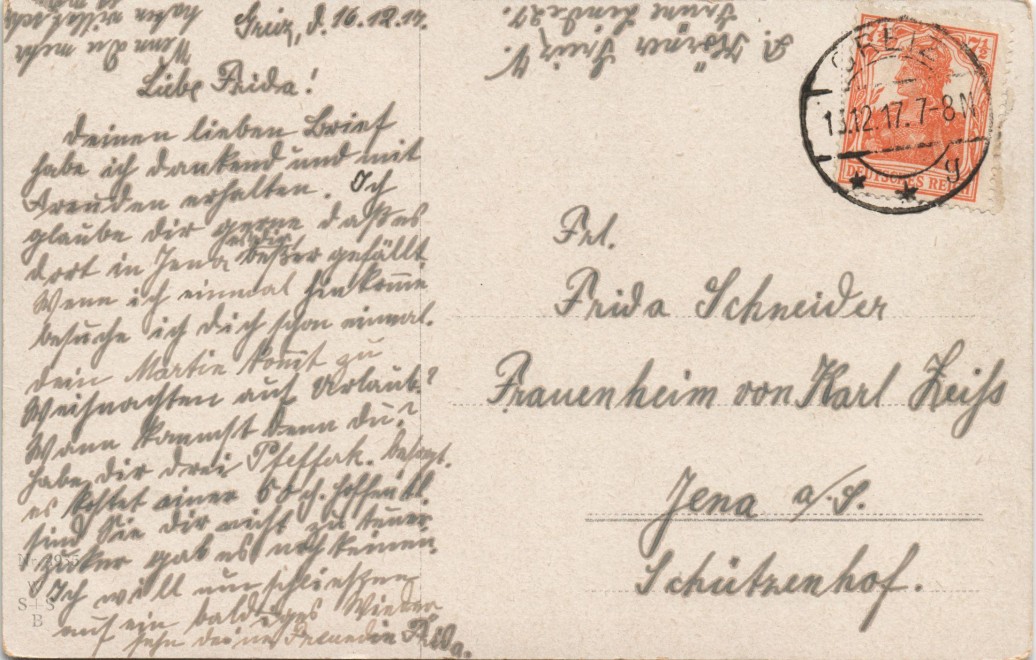 Greiz, d. 16.12.17.
Liebe Frida!
Deinen lieben Brief
habe ich dankend und mit
Freuden erhalten. Ich
glaube dir gerne daß es
dort in Jena es dir besser gefällt
Wenn ich einmal hinkomme
besuche ich dich schon einmal.
dein Martin kommt zu
Weihnachten auf Urlaub?
Wann kommst denn du?
habe dir drei Pfefferk. besorgt.
es kostet einer 60 ch. hoffentl.
sind Sie dir nicht zu teuer.
Zucker gab es noch keinen.
Ich will nun schließen
auf ein baldiges Wieder
sehn deine Freundin Frida.
Wenn du mehr
haben willst
Greiz
Grüne Linde 27.
GREIZ
13.12.17. 7-8 N
g
7½
7½
DEUTSCHES REICH
Frl.
Frida Schneider
Frauenheim von Karl Zeiss
Jena a/S.
Schützenhof.
S+S
B